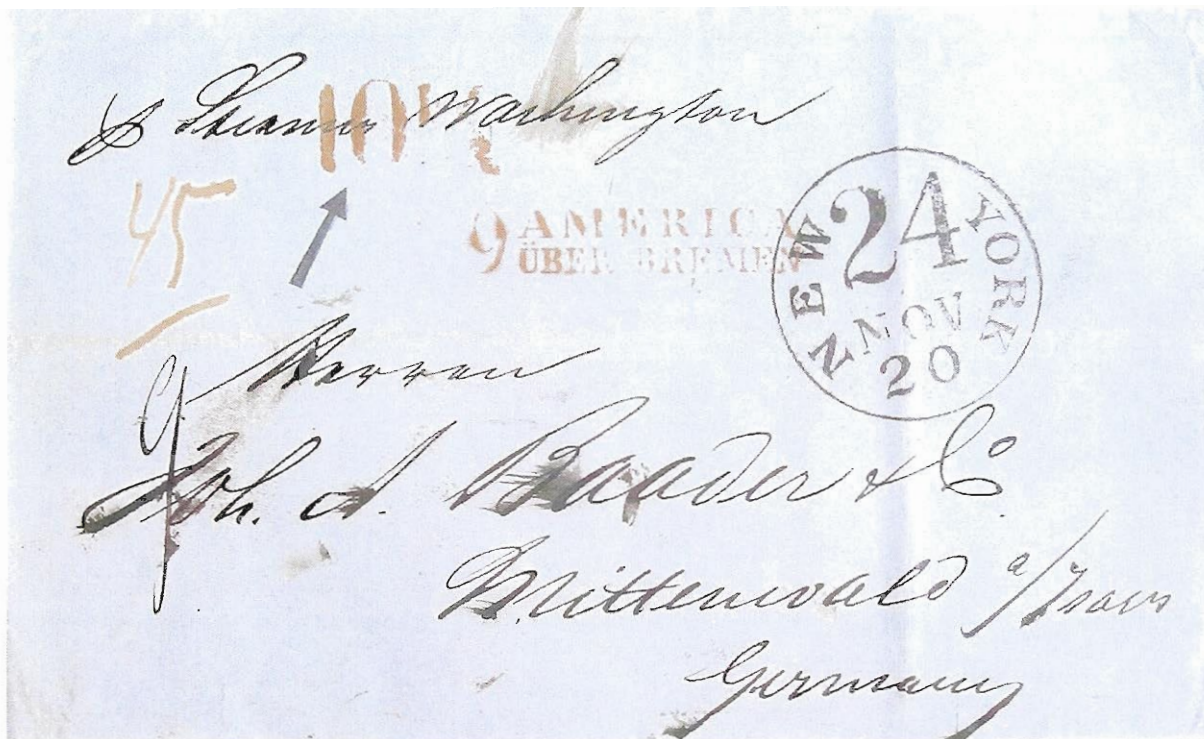 p Steamer Washington
10 1/2
45
9 AMERICA
ÜBER BREMEN
NEW YORK
24
NOV
20
Herren
9
Joh. A. Baader & Co
Mittenwald a/Isar
Germany